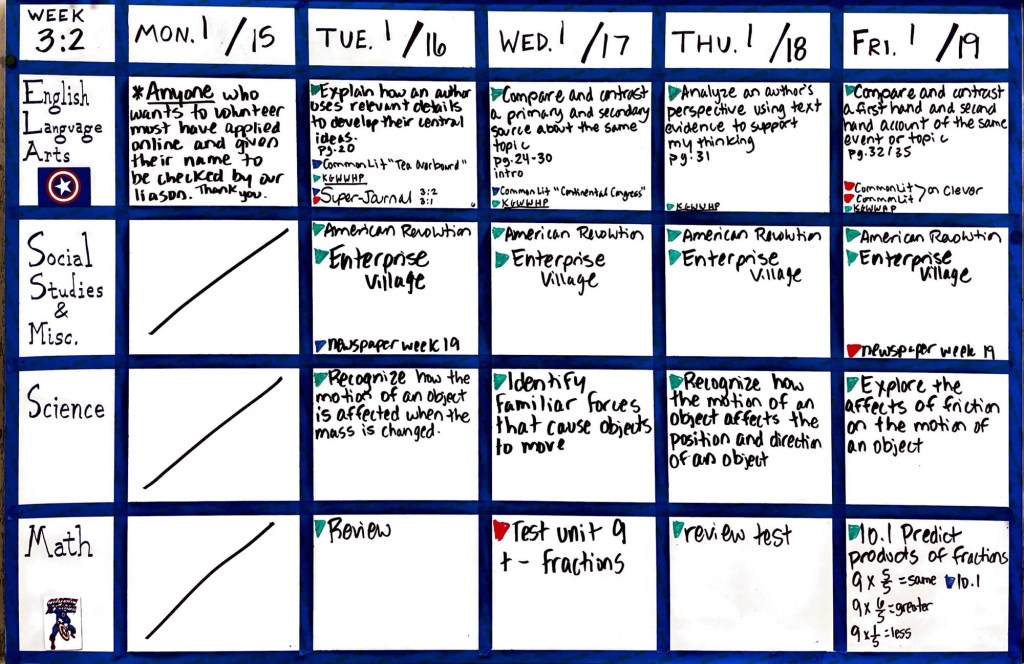 WEEK
3:2
MON. 1/15
TUE. 1/16
WED. 1/17
THU. 1/18
FRI. 1/19
English
Language
Arts
*Anyone who
wants to volunteer
must have applied
online and given
their name to
be checked by our
liason. Thank you.
Explain how an author
uses relevant details
to develop their central
ideas.
pg.20
CommonLit "Tea Overboard"
KGWWHP
Super-Journal 3:2
3:1
Compare and contrast
a primary and secondary
source about the same
topic
pg.24-30
intro
CommonLit "Continental Congress"
KGWWHP
Analyze an author's
perspective using text
evidence to support
my thinking
pg.31
KGWWHP
Compare and contrast
a first hand and second
hand account of the same
event or topic
pg.32/35
CommonLit
CommonLit
on Clever
KGWWHP
Social
Studies
&
Misc.
American Revolution
Enterprise
Village
newspaper week 19
American Revolution
Enterprise
Village
American Revolution
Enterprise
Village
American Revolution
Enterprise
Village
newspaper week 19
Science
Recognize how the
motion of an object
is affected when the
mass is changed.
Identify
familiar forces
that cause objects
to move
Recognize how
the motion of an
object affects the
position and direction
of an object
Explore the
affects of friction
on the motion of
an object
Math
Review
Test unit 9
+ - fractions
review test
10.1 Predict
products of fractions
9 x 5/5 = same 10.1
9 x 6/5 = greater
9 x 1/5 = less